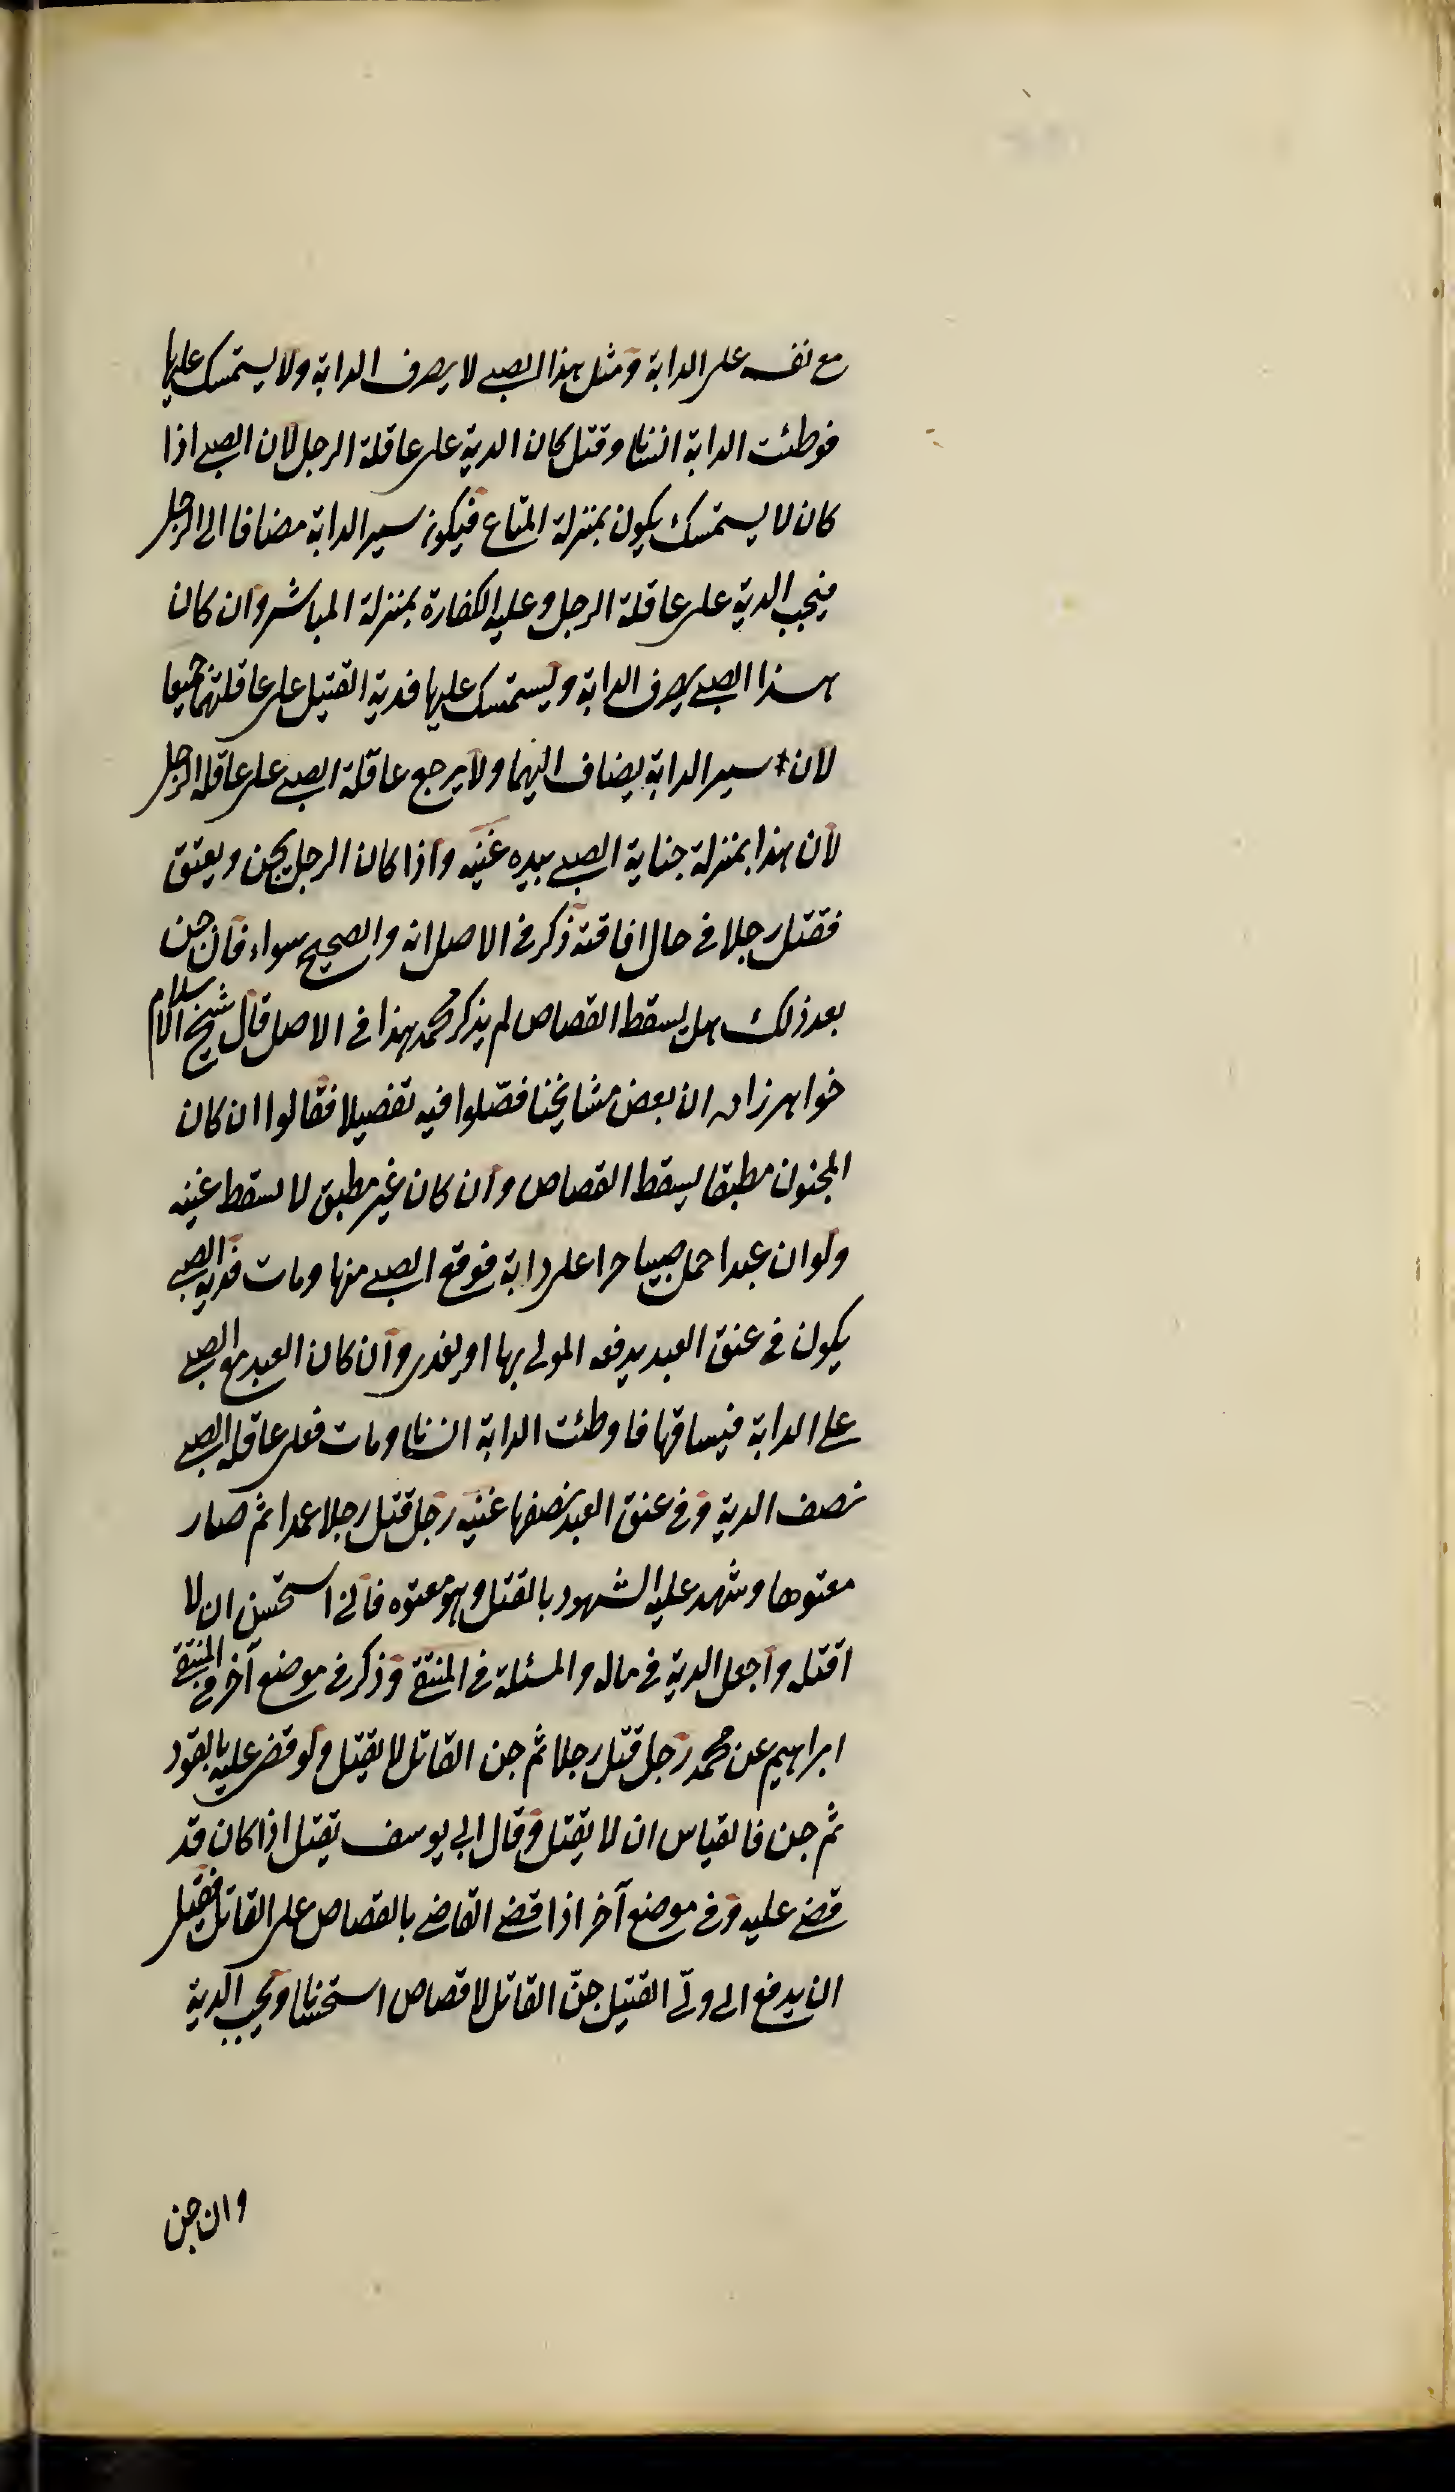 مع نفسه على الدابة ومثل هذا الصبي لا يصرف الدابة ولا يستمسك عليها
فوطئت الدابة انسانا وقتل كان الدية على عاقلة الرجل لان الصبي اذا
كان لا يستمسك يكون بمنزلة المتاع فيكون سير الدابة مضافا الى الرجل
فيجب الدية على عاقلة الرجل وعليه الكفارة بمنزلة المباشر وان كان
هذا الصبي يصرف الدابة ويستمسك عليها فدية القتيل على عاقلتهما جميعا
لان سير الدابة يضاف اليهما ولا يرجع عاقلة الصبي على عاقلة الرجل
لان هذا بمنزلة جناية الصبي بيده غنيه واذا كان الرجل يجن ويعتق
فقتل رجلا في حال افاقته ذكر في الاصل انه والصحيح سواء فان جن
بعد ذلك هل يسقط القصاص لم يذكر محمد هذا في الاصل قال شيخ الاسلام
خواهرزاده ان بعض مشايخنا فصّلوا فيه تفصيلا فقالوا ان كان
المجنون مطبقا يسقط القصاص وان كان غير مطبق لا يسقط غنيه
ولو ان عبدا حمل صبيا حرا على دابة فوقع الصبي منها ومات فدية الصبي
يكون في عنق العبد يدفعه المولى بها او يفدى وان كان العبد مع الصبي
على الدابة فيساقها فاوطئت الدابة انسانا ومات فعلى عاقلة الصبي
نصف الدية وفي عنق العبد نصفها غنيه رجل قتل رجلا عمدا ثم صار
معتوها وشهد عليه الشهود بالقتل وهو معتوه فاني استحسن ان لا
اقتله واجعل الدية في ماله والمسئلة في المنتقى وذكر في موضع آخر في المنتقى
ابراهيم عن محمد رجل قتل رجلا ثم جن القاتل لا يقتل ولو قضى عليه بالقود
ثم جن فالقياس ان لا يقتل وقال ابي يوسف يقتل اذا كان قد
قضى عليه وفي موضع آخر اذا قضى القاضي بالقصاص على القاتل فقبل
ان يدفع الى ولّي القتيل جنّ القاتل لا قصاص استحسانا ويجب الدية
وان جن